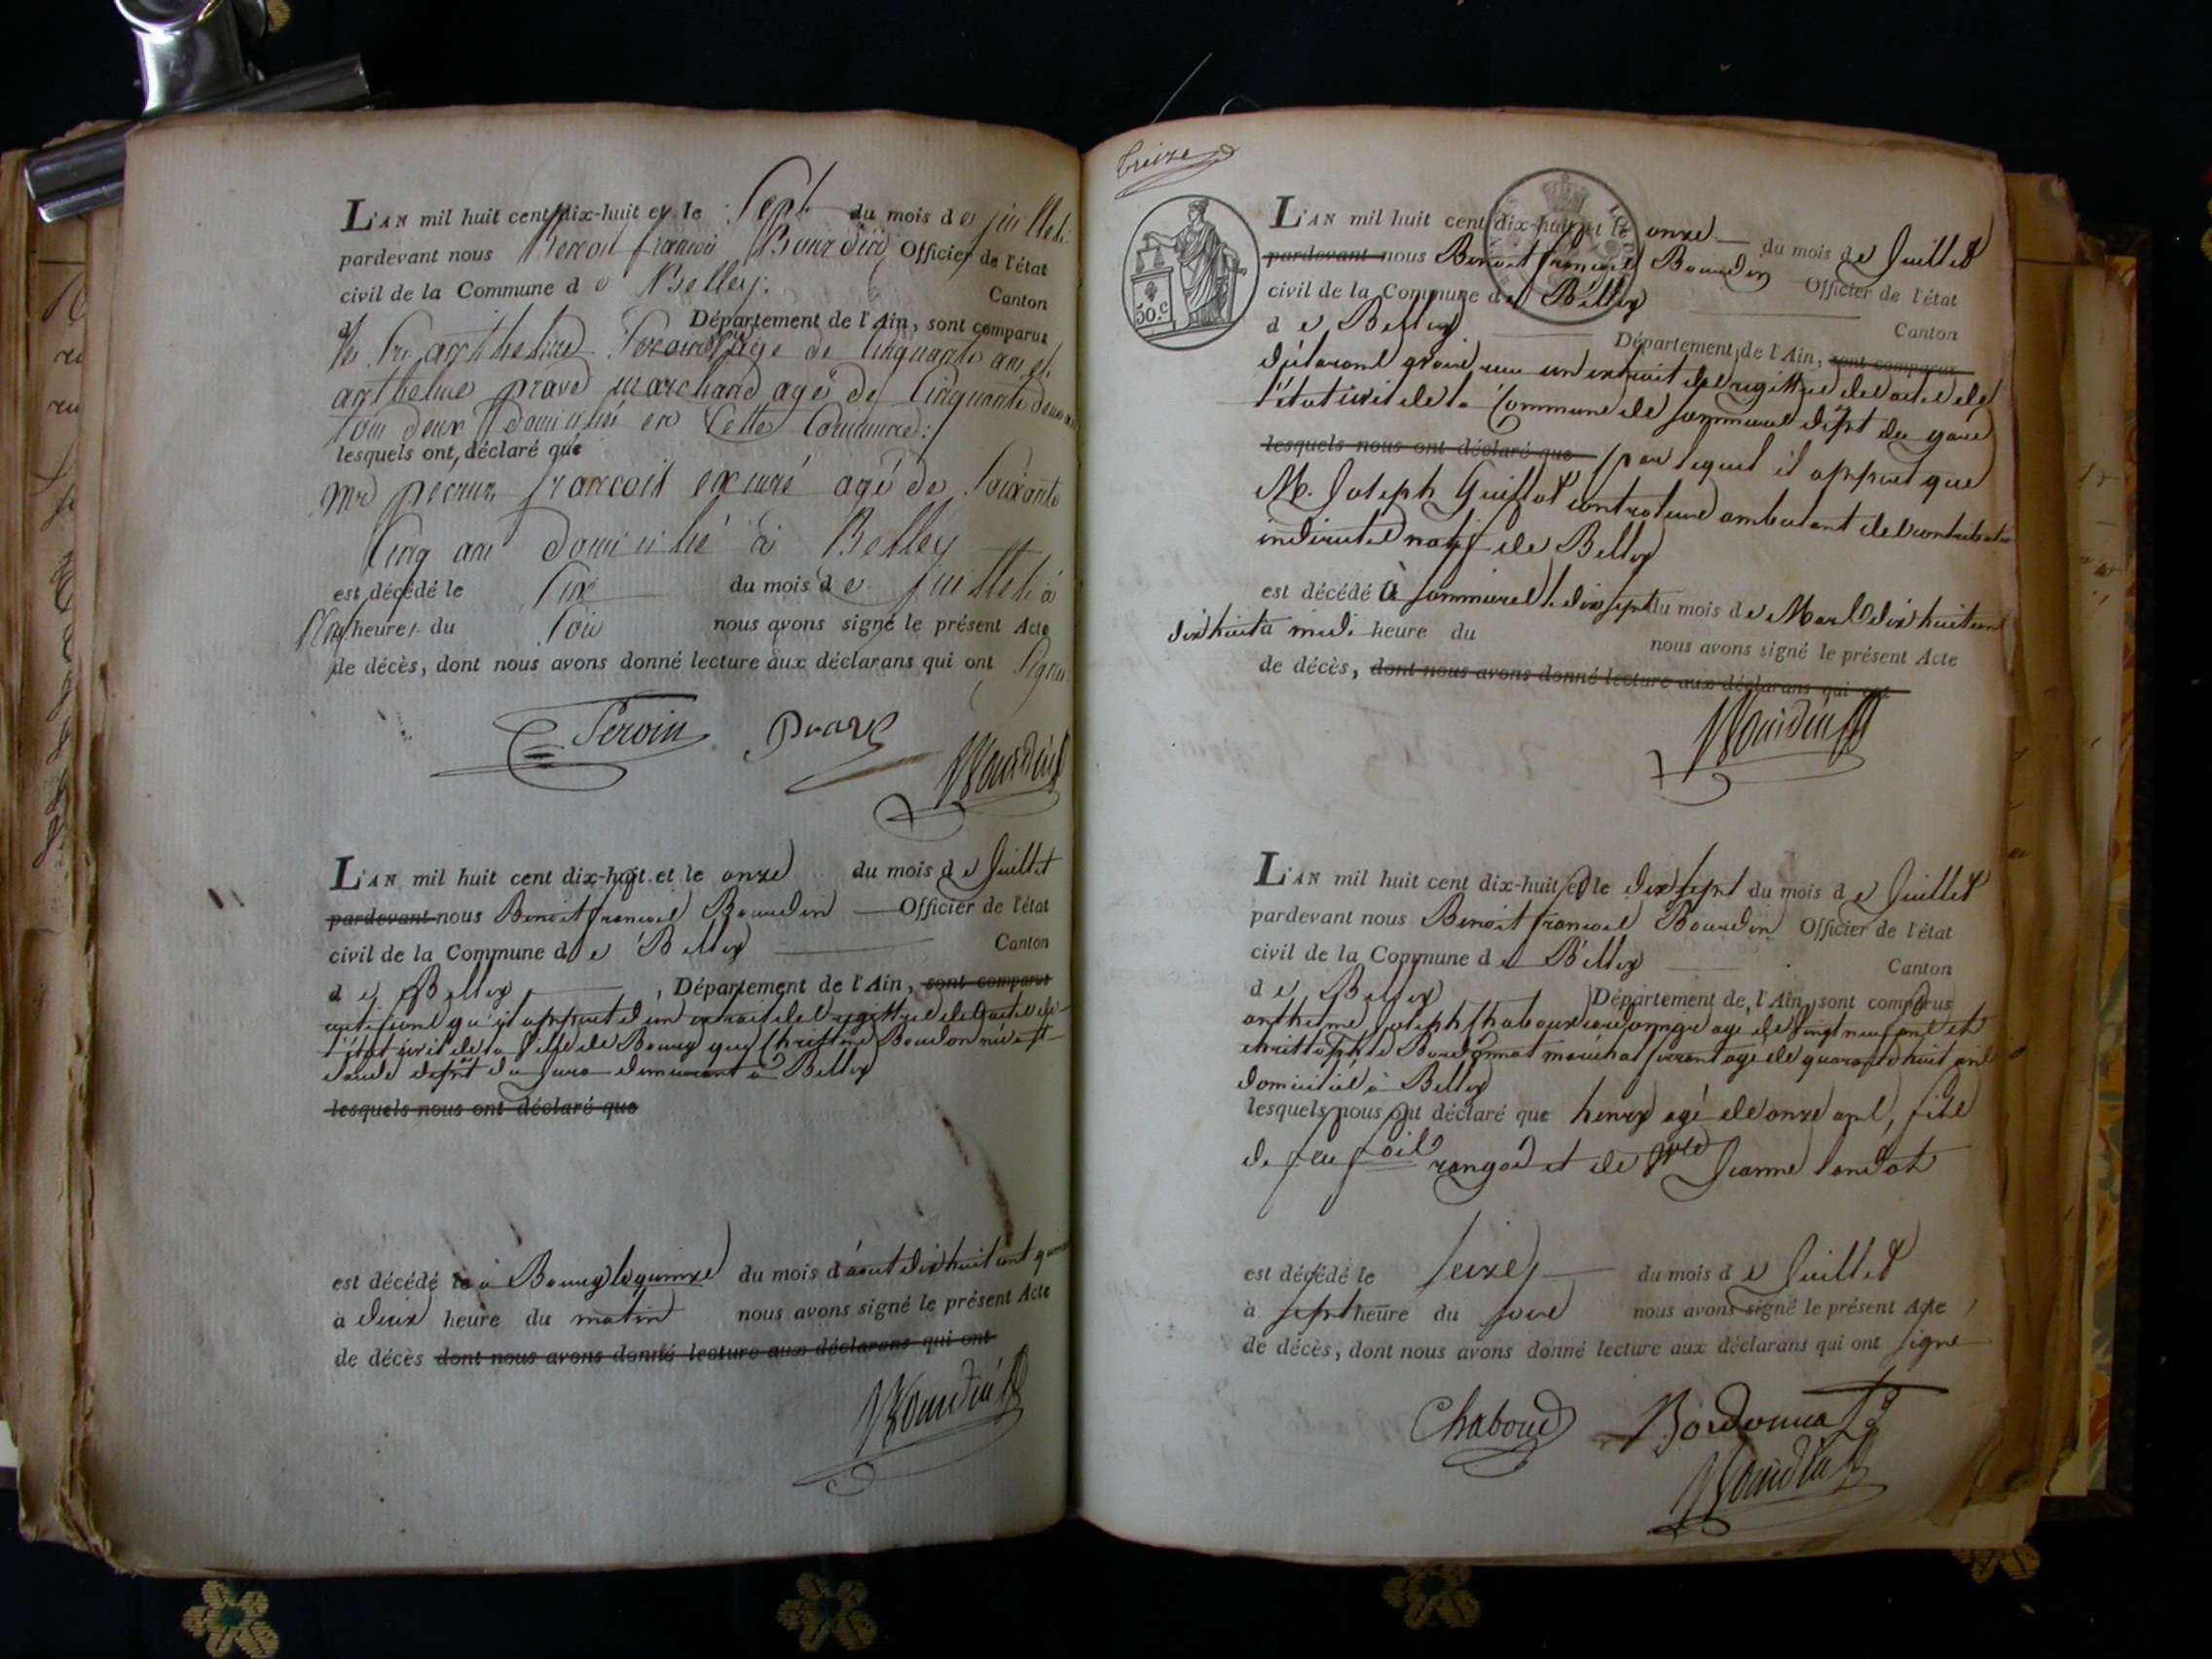 L'AN mil huit cent dix-huit et le Sept du mois de juillet
pardevant nous Benoit françois Bourdin Officier de l'état
civil de la Commune de Belley. Canton
d Département de l'Ain, sont comparus
Sr anthelme Peroin agé de Cinquante ans et
anthelme prave marchand agé de Cinquante deux
tous deux domiciliés en Cette Commune
lesquels ont déclaré que
Mr françois ex curé agé de Soixante
Cinq ans domicilié à Belley
est décédé le Six du mois de juillet à
Cinq heures du Soir nous avons signé le présent Acte
de décès, dont nous avons donné lecture aux déclarans qui ont Signé
Peroin Prave
Bourdin
L'AN mil huit cent dix-huit et le onze du mois de Juillet
pardevant nous Benoit françois Bourdin Officier de l'état
civil de la Commune de Belley Canton
de Belley, Département de l'Ain, sont comparus
certifions qu'il appert d'un extrait des registres des actes de
l'état civil de la Ville de Bourg que Christine Bourdon née à St
Claude dépt du Jura demeurant à Belley
lesquels nous ont déclaré que
est décédé le à Bourg le quinze du mois d'août dix huit cent
à deux heure du matin nous avons signé le présent Acte
de décès dont nous avons donné lecture aux déclarans qui ont
Bourdin
treize
50.C
L'AN mil huit cent dix-huit et le onze du mois de Juillet
pardevant nous Benoit françois Bourdin Officier de l'état
civil de la Commune de Belley Canton
de Belley Département de l'Ain, sont comparus
déclarons avoir reçu un extrait des registres des actes de
l'état civil de la Commune de Sommieres dépt du gard
lesquels nous ont déclaré que par lequel il appert que
M. Joseph Guillot controleur ambulant des contributions
indirectes natif de Belley
est décédé à Sommieres le dix sept du mois de Mars dix huit cent
dix huit à midi heure du nous avons signé le présent Acte
de décès, dont nous avons donné lecture aux déclarans qui ont
Bourdin
L'AN mil huit cent dix-huit et le dix sept du mois de Juillet
pardevant nous Benoit françois Bourdin Officier de l'état
civil de la Commune de Belley Canton
de Belley Département de l'Ain, sont comparus
anthelme Joseph Chaboud cordonnier agé de vingt neuf ans et
christophe Bordonnat maréchal ferrant agé de quarante huit ans
domiciliés à Belley
lesquels nous ont déclaré que henry agé de onze ans, fils
de feu rangod et de Jeanne landot
est décédé le seize du mois de Juillet
à sept heure du soir nous avons signé le présent Acte
de décès, dont nous avons donné lecture aux déclarans qui ont signé
Chaboud Bordonnat
Bourdin